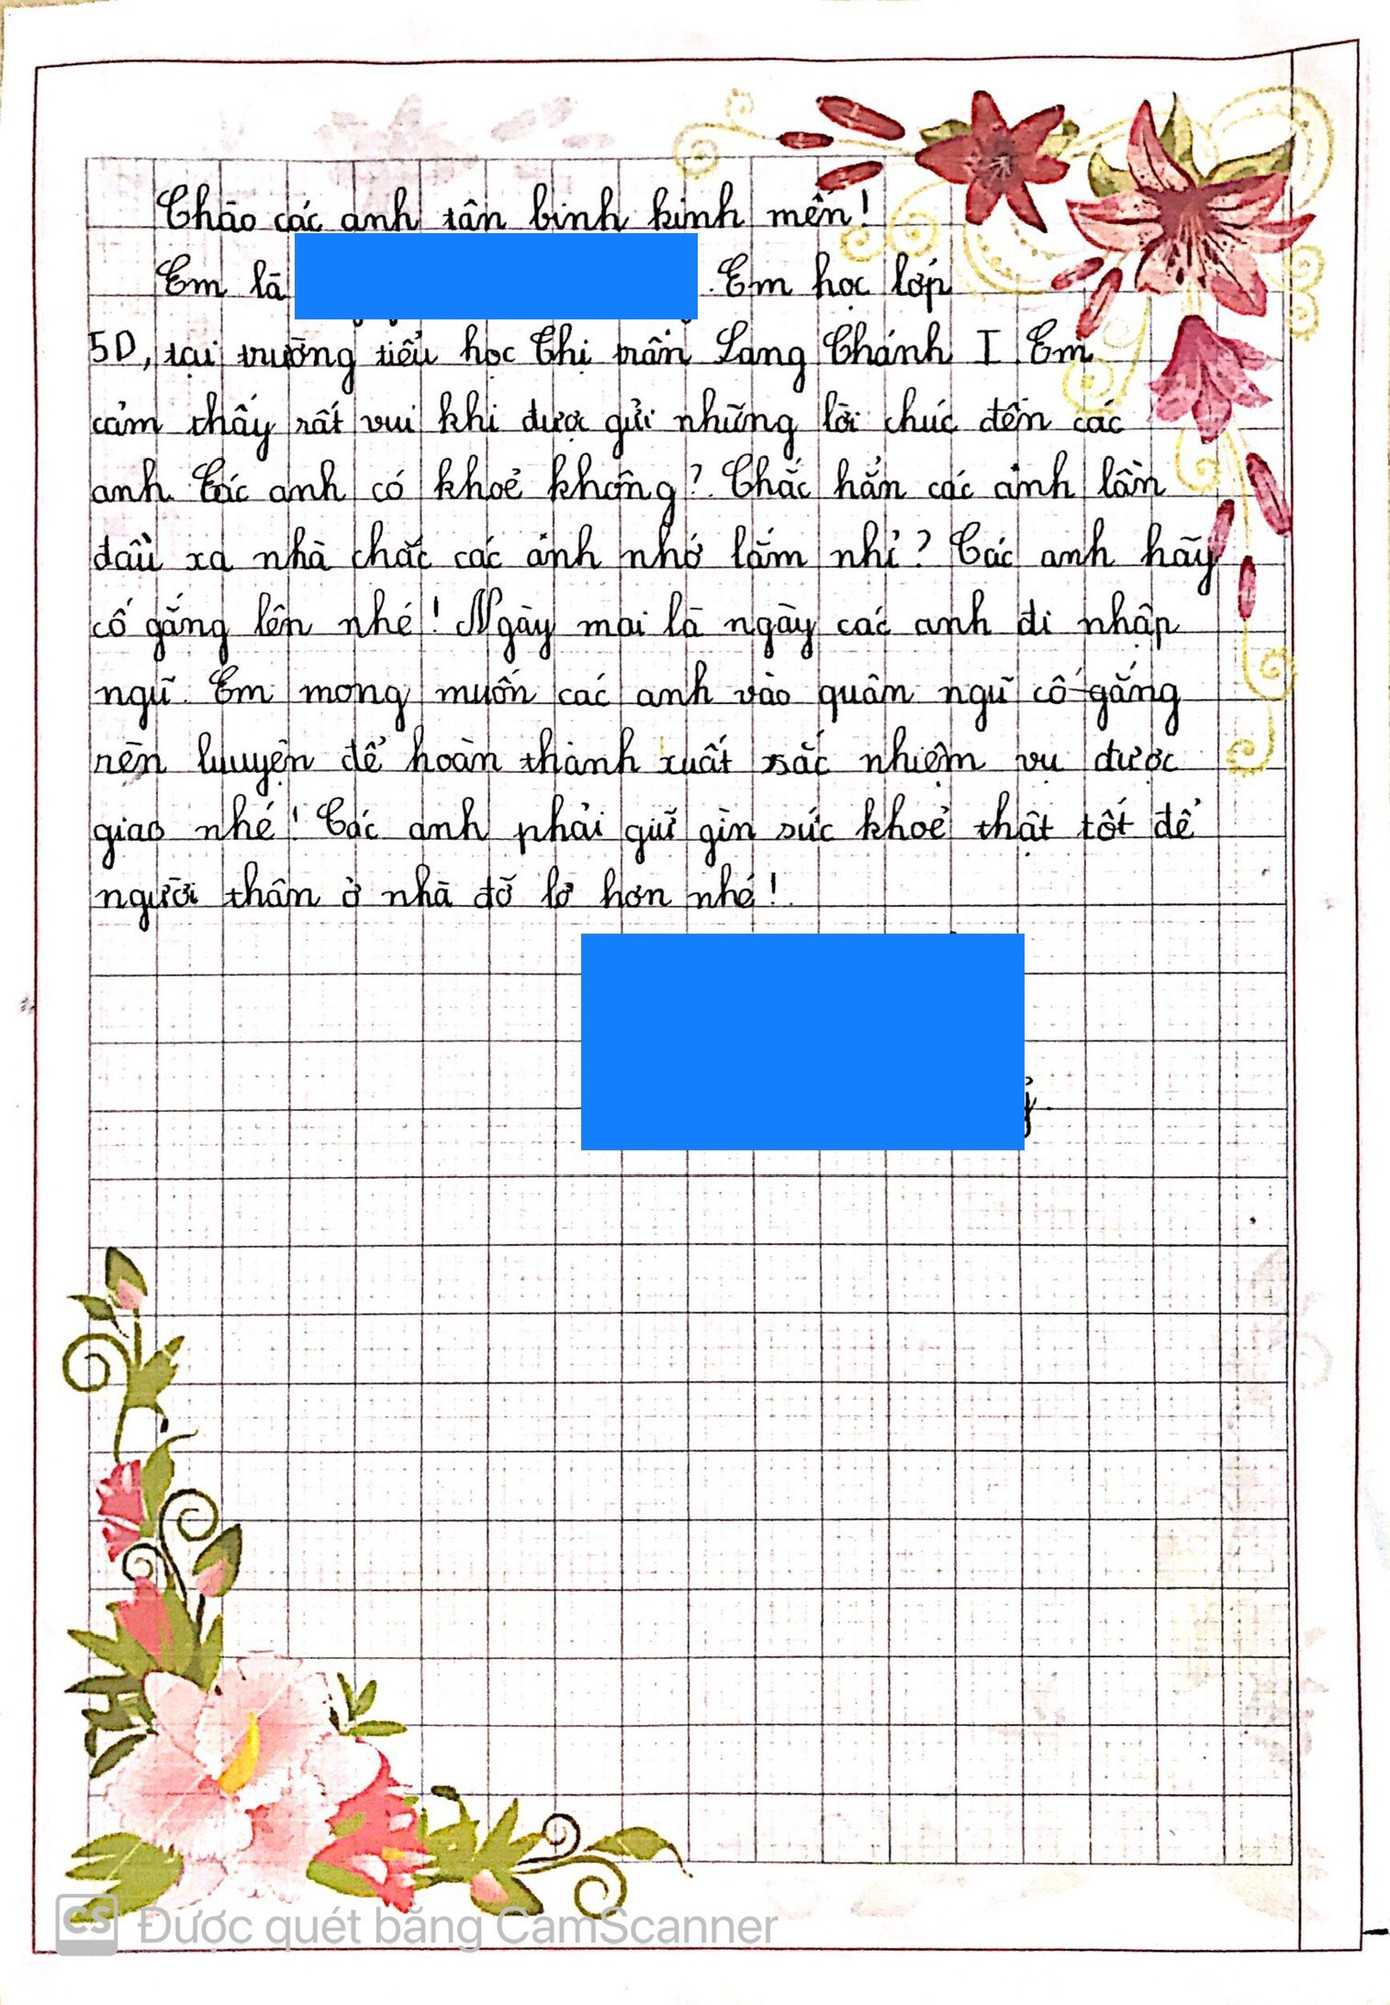 Chào các anh tân binh kính mến!
Em là
. Em học lớp
5D, tại trường tiểu học Thị trấn Lang Chánh I. Em
cảm thấy rất vui khi được gửi những lời chúc đến các
anh. Các anh có khoẻ không? Chắc hẳn các anh lần
đầu xa nhà chắc các anh nhớ lắm nhỉ? Các anh hãy
cố gắng lên nhé! Ngày mai là ngày các anh đi nhập
ngũ. Em mong muốn các anh vào quân ngũ cố gắng
rèn luyện để hoàn thành xuất sắc nhiệm vụ được
giao nhé! Các anh phải giữ gìn sức khoẻ thật tốt để
người thân ở nhà đỡ lo hơn nhé!
CS Được quét bằng CamScanner